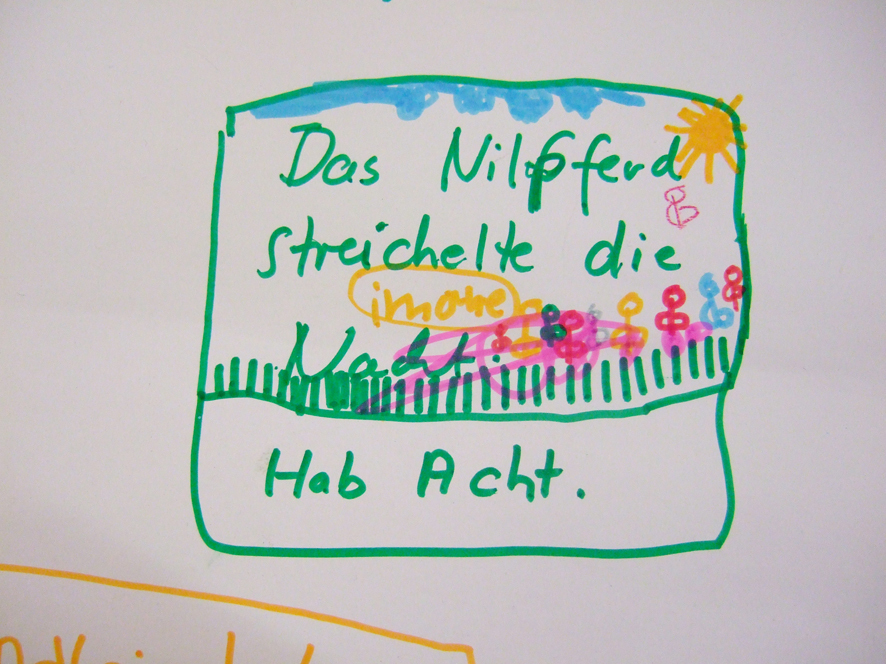 Das Nilpferd
streichelte die
Nacht.
Hab Acht.